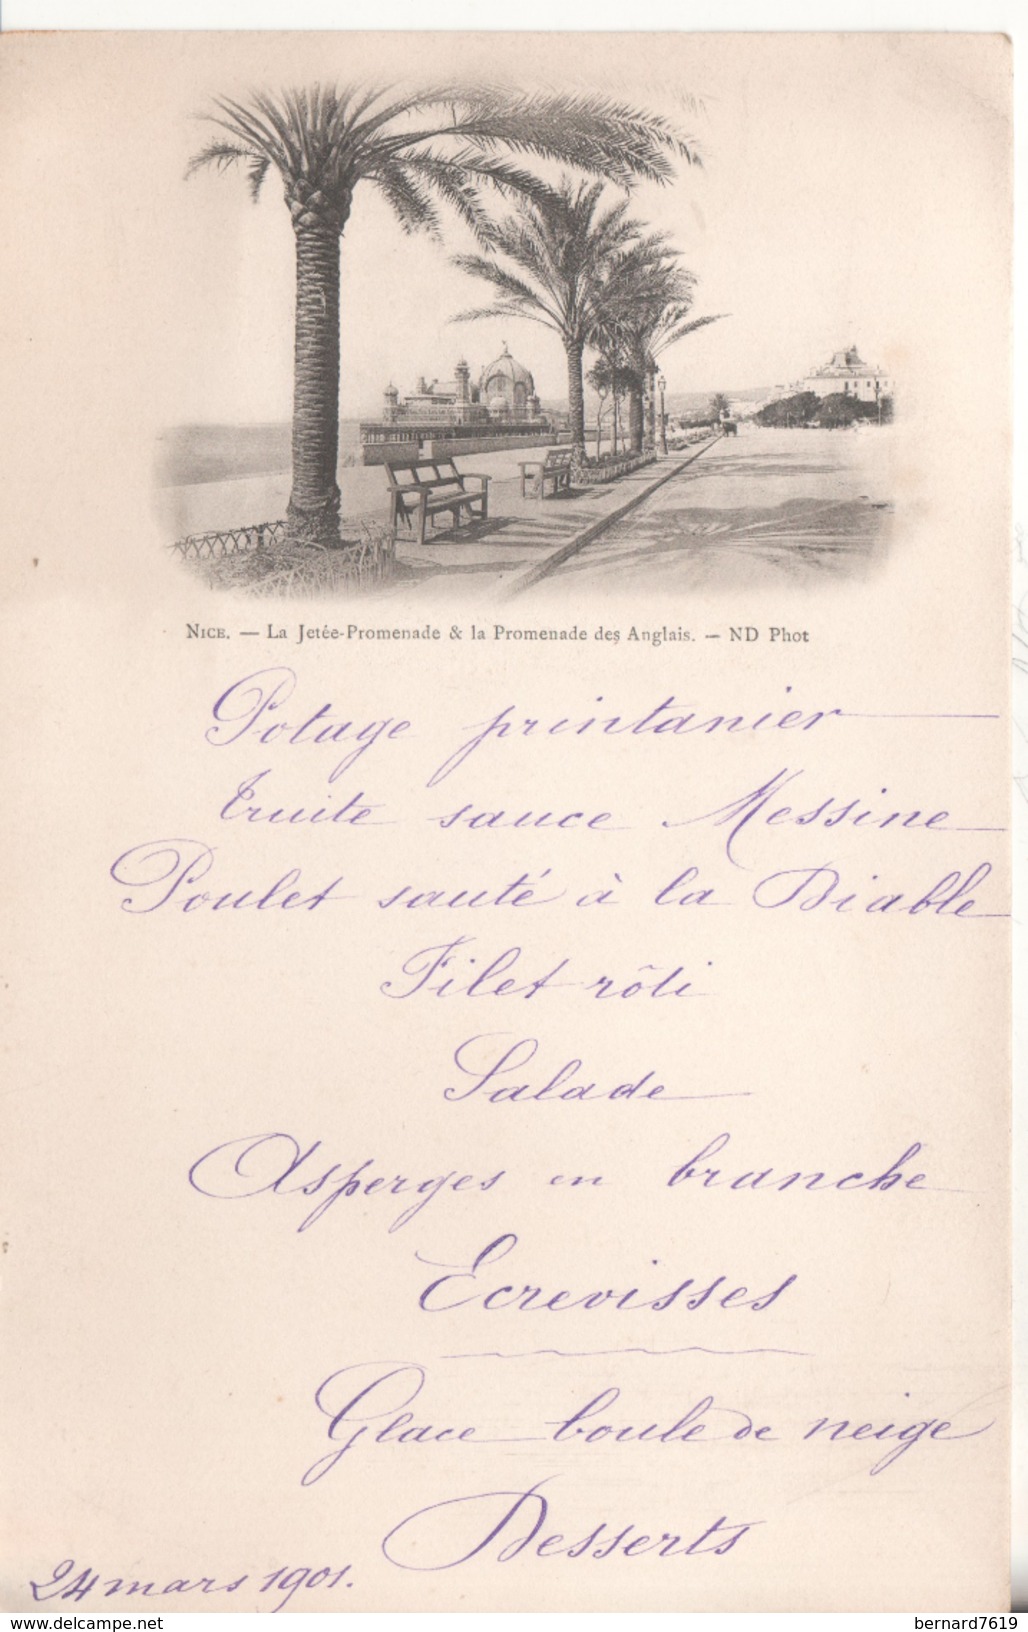 NICE. — La Jetée-Promenade & la Promenade des Anglais. — ND Phot
Potage printanier
Truite sauce Messine
Poulet sauté à la Diable
Filet rôti
Salade
Asperges en branche
Ecrevisses
Glace boule de neige
Desserts
24 mars 1901.
www.delcampe.net
bernard7619